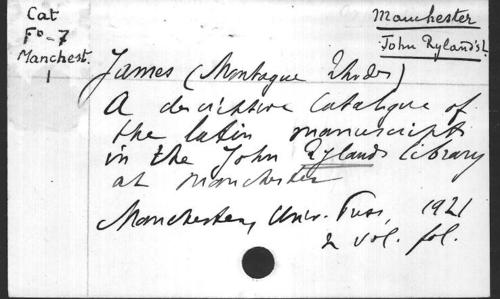 Cat
Fº-7
Manchest.
1
Manchester
John Ryland's L.
James (Montague Rhodes)
A descriptive Catalogue of
the latin manuscripts
in the John Rylands library
at Manchester
Manchester, Univ. Press, 1921
2 vol. fol.